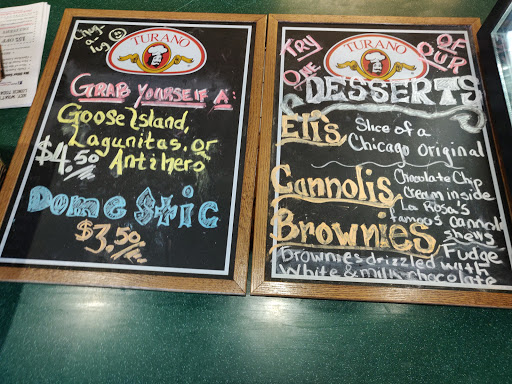 Chug-
ing
TURANO
GRAB YOURSELF A:
Goose Island,
Lagunitas, or
$4.50
Antihero
Domestic
$3.50/ea.
TRY
ONE
OF
OUR
TURANO
DESSERTS
Eli's Slice of a
Chicago Original
Cannolis Chocolate Chip
Cream inside
La Rosa's
famous cannoli
Brownies Fudge
Brownies drizzled with
White & milk chocolate